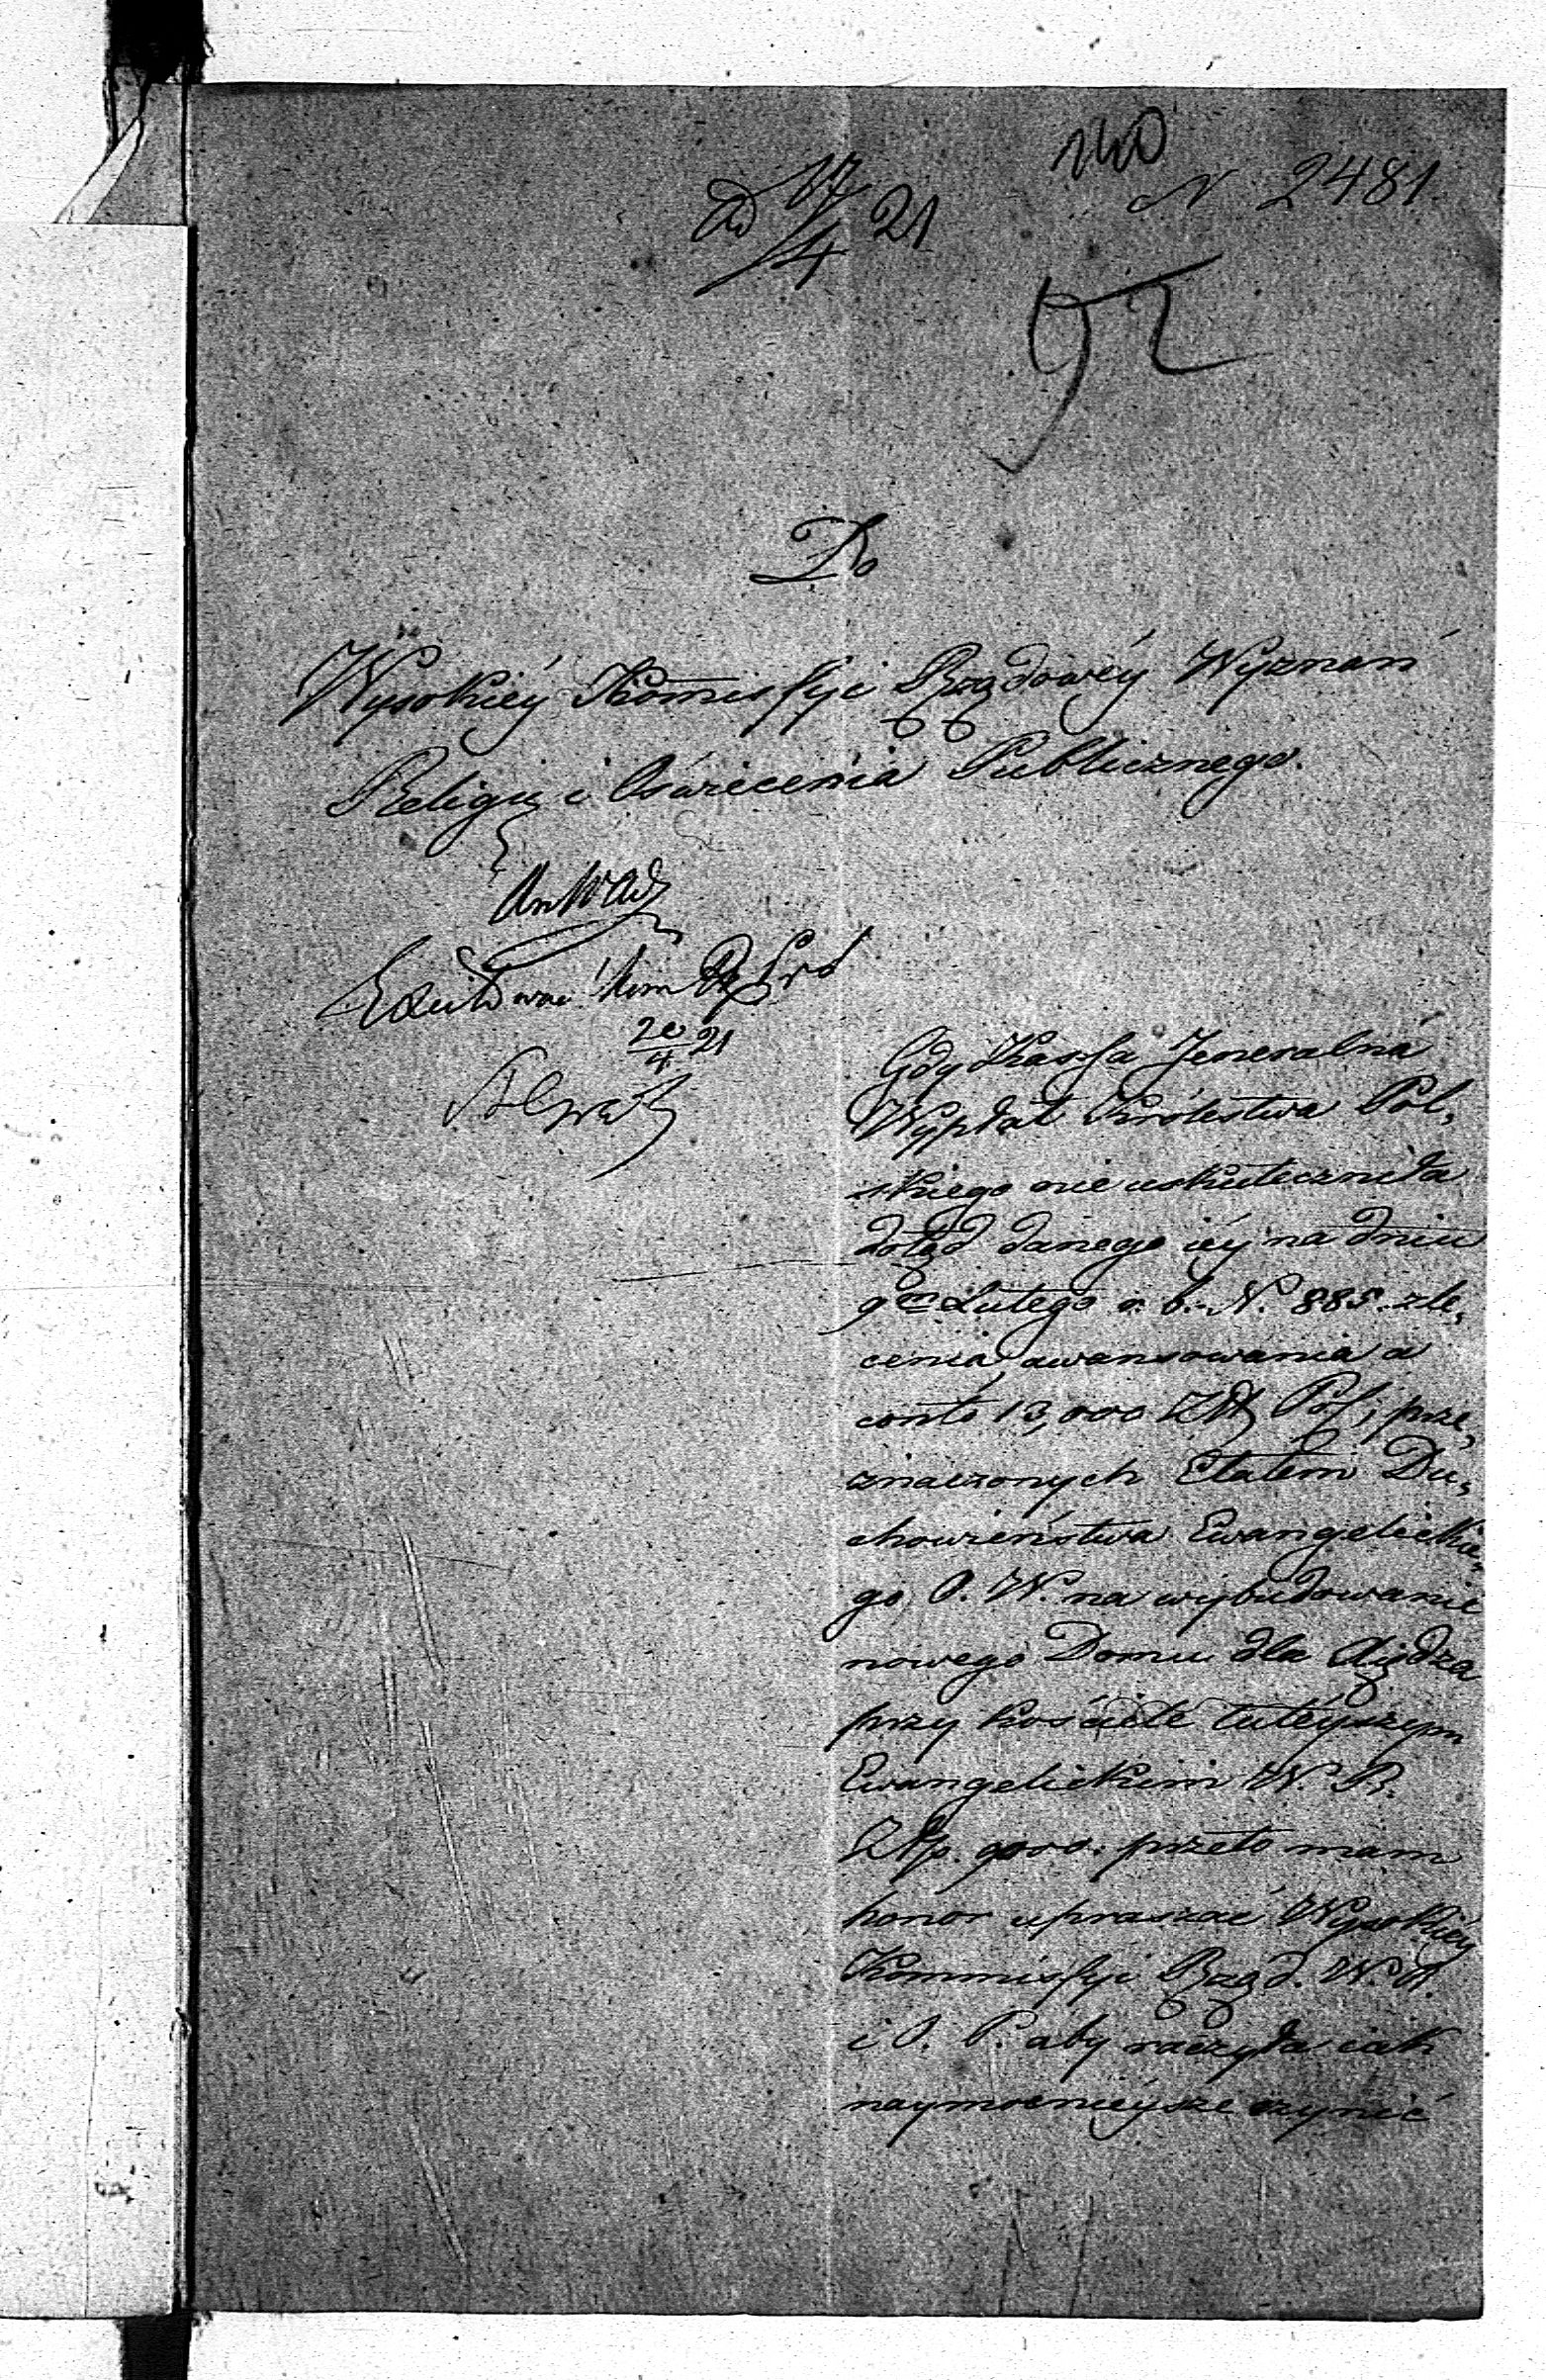 140
N 2481.
17/4 21
92
Do
Wysokiéy Kom̄issyi Rządowéy Wyznań
Religii i Oświecenia Publicznego.
20/4 21
Gdy Kassa Jeneralna
Wypłat Królestwa Pol„
skiego nie uskuteczniła
dotąd danego iéy na dniu
9 Lutego r. b. N. 885. zle„
cenia, awansowania a
conto 13,000 Zł Pol; prze„
znaczonych Etatem Du„
chowieństwa Ewangelickie„
go O. W. na wybudowanie
nowego Domu dla Xiędza
przy kościele tutéyszym
Ewangelickim W. R.
Złp. 9000: przeto mam
honor upraszać Wysokiéy
Kommissyi Rząd. W. R.
i O. P. aby raczyła iak
naymocniéysze czynić